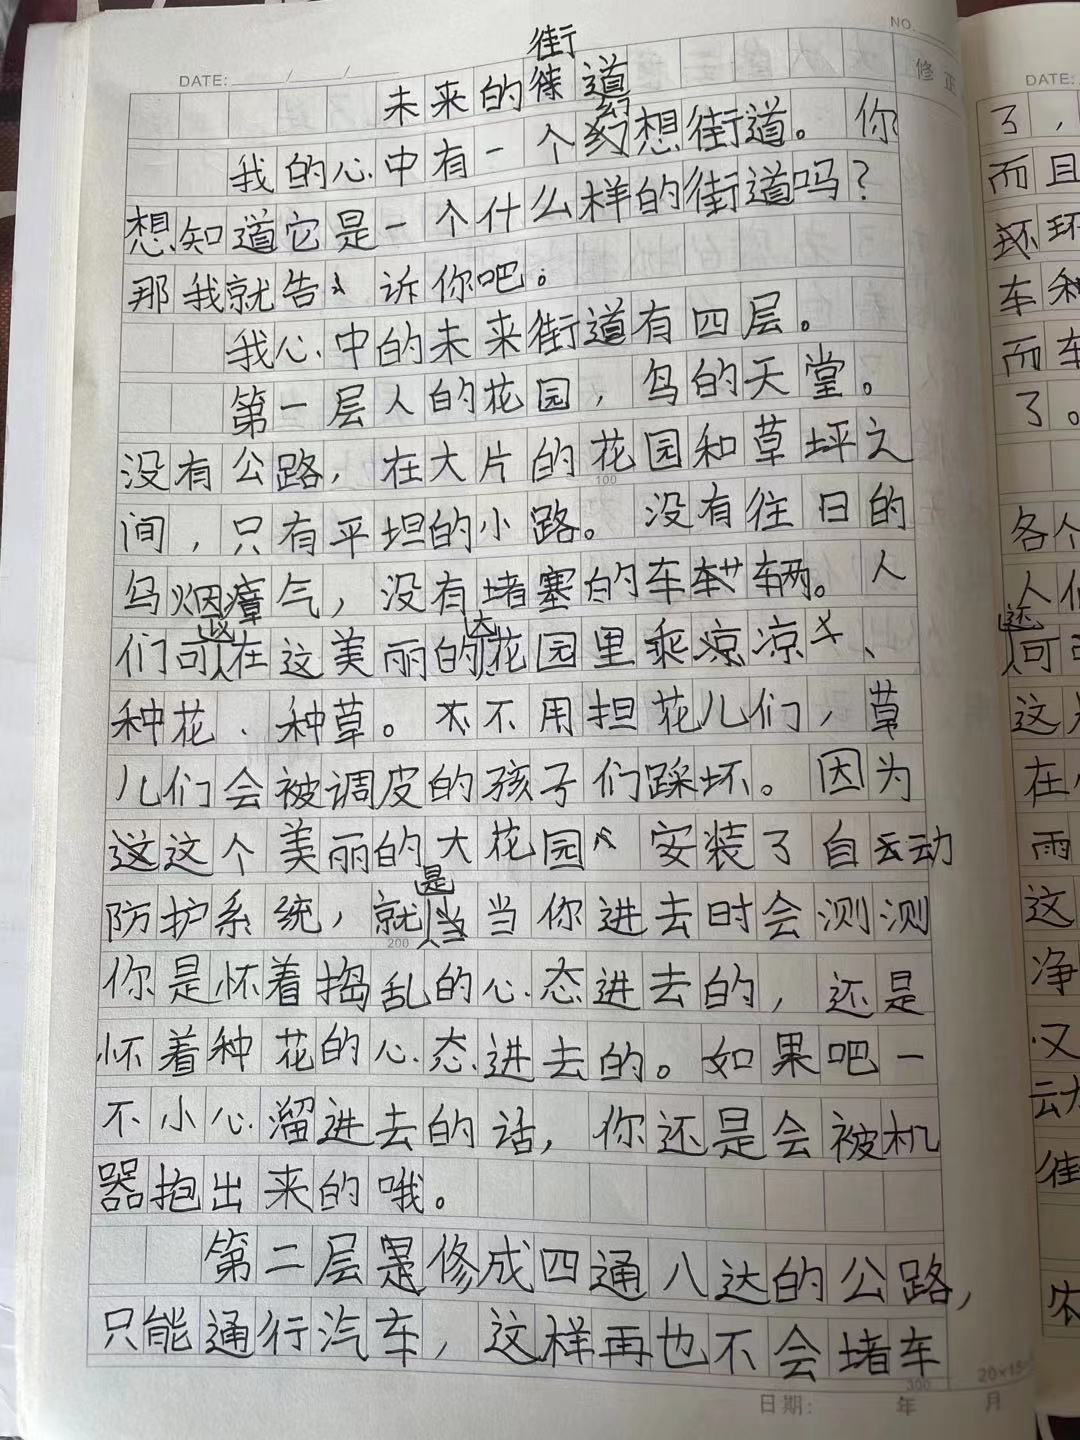 NO.
DATE: / /
修正
未来的街道
我的心中有一个幻想街道。你
想知道它是一个什么样的街道吗？
那我就告诉你吧。
我心中的未来街道有四层。
第一层人的花园，鸟的天堂。
没有公路，在大片的花园和草坪之
100
间，只有平坦的小路。没有往日的
乌烟瘴气，没有堵塞的车辆。人
们可以在这美丽的大花园里乘凉、
种花、种草。不用担花儿们，草
儿们会被调皮的孩子们踩坏。因为
这个美丽的大花园安装了自动
防护系统，就是当你进去时会测测
200
你是怀着捣乱的心态进去的，还是
怀着种花的心态进去的。如果吧一
不小心溜进去的话，你还是会被机
器抱出来的哦。
第二层是修成四通八达的公路，
只能通行汽车，这样再也不会堵车
300
日期： 年 月
DATE:
了，
而且
环
车
而车
了。
各个
人们
还可
这
在
雨
这
净
又
街